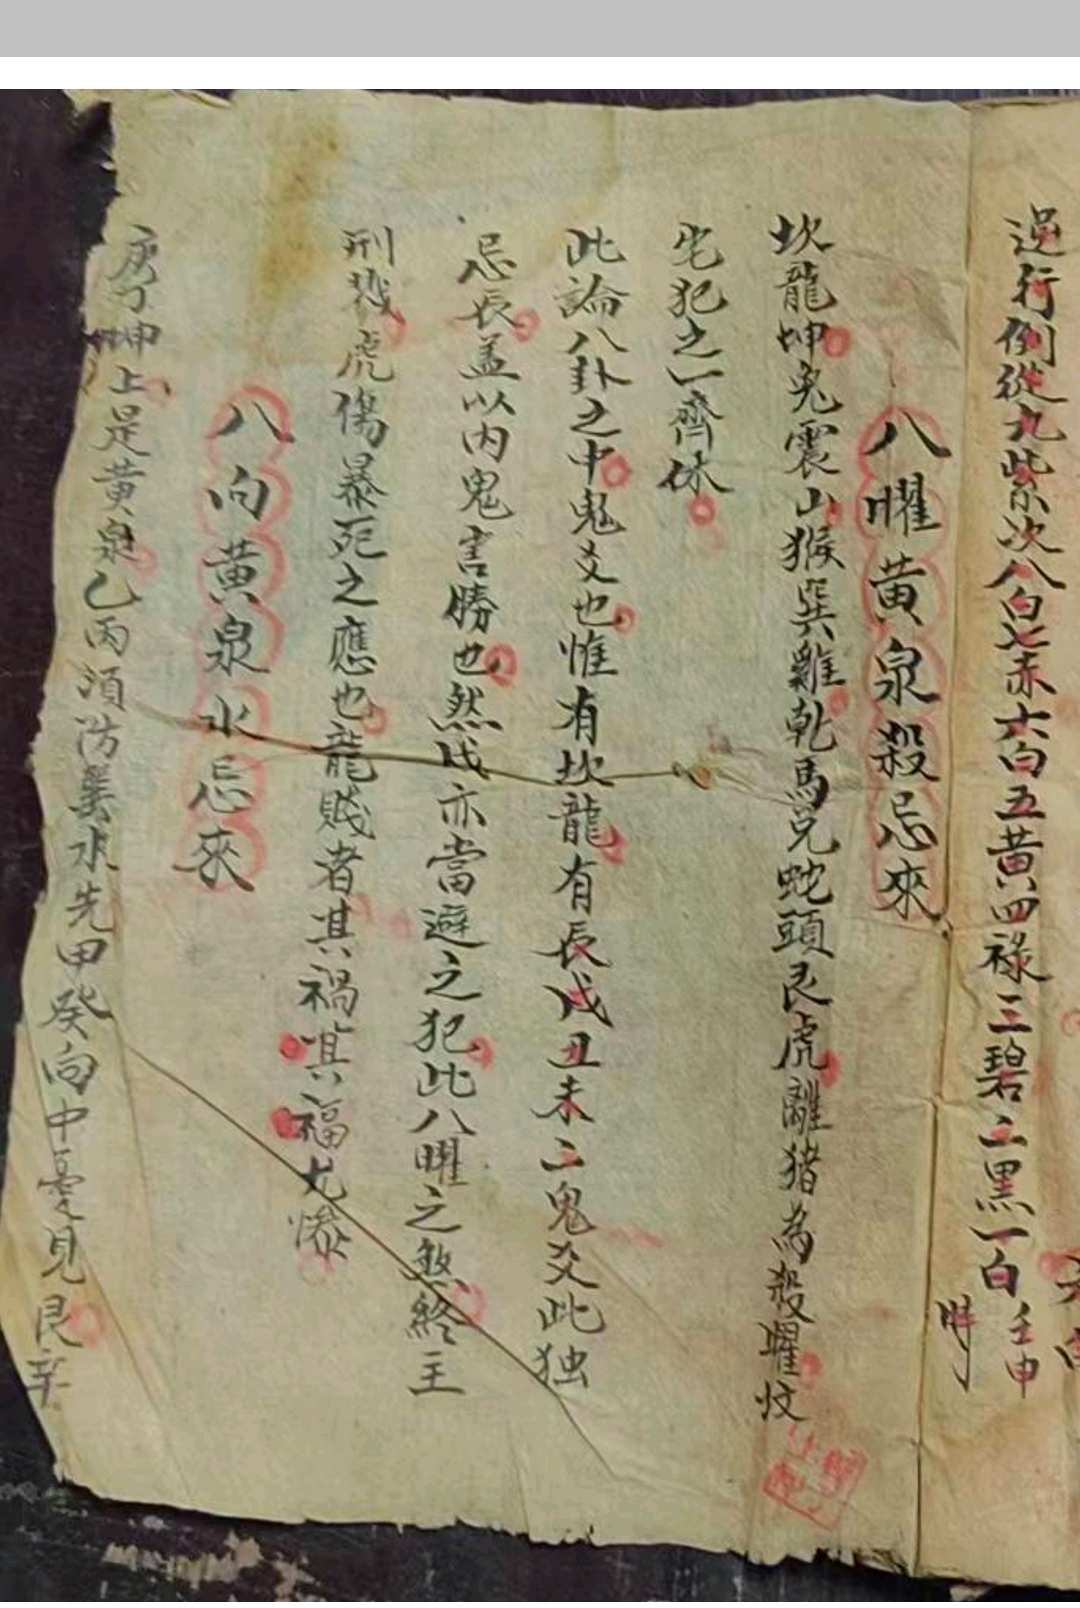 逆行例從九紫次八白七赤六白五黃四祿三碧二黑一白壬申
時
八曜黃泉殺忌來
坎龍坤兔震山猴巽雞乾馬兌蛇頭艮虎離猪為殺曜坟
宅犯之一齊休
此論八卦之中鬼爻也惟有坎龍有辰戌丑未二鬼爻此独
忌辰盖以内鬼害勝也然戌亦當避之犯此八曜之煞終主
刑戮虎傷暴死之應也龍賤者其禍其福尤慘
八向黃泉水忌來
庚丁坤上是黃泉乙丙須防巽水先甲癸向中憂見艮辛